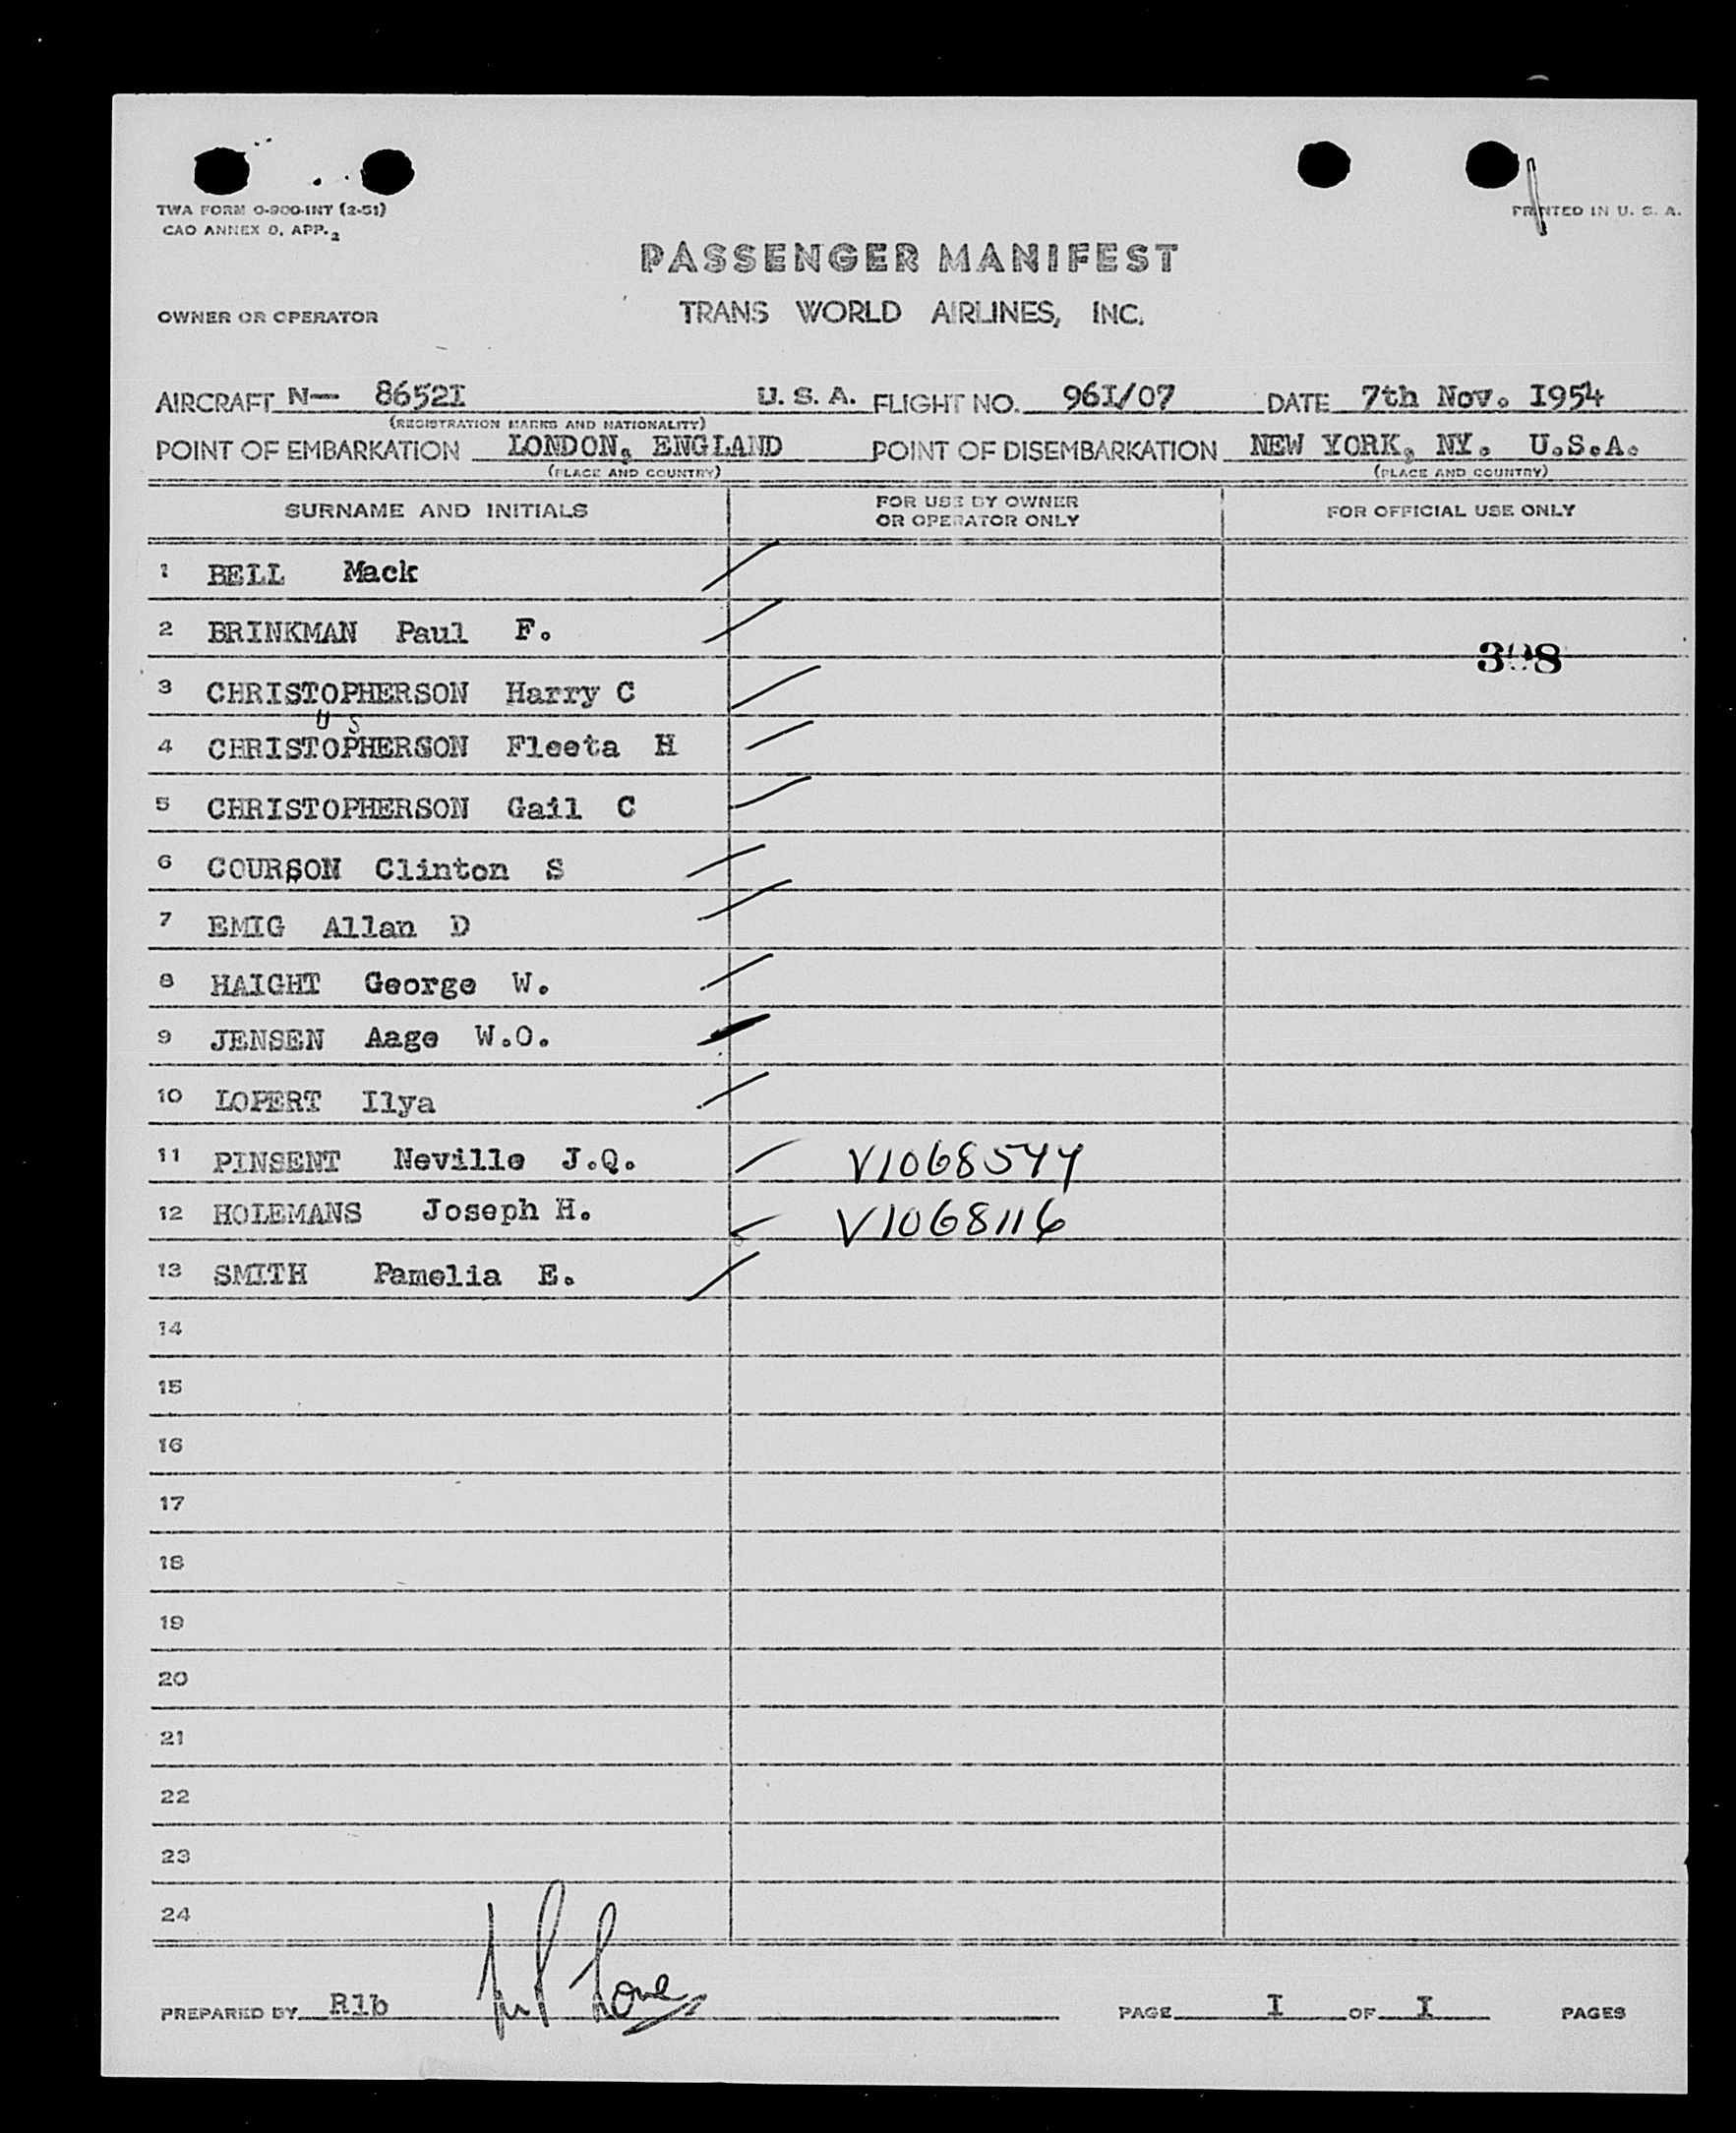 TWA FORM O-900-INT (2-51)
PRINTED IN U. S. A.
CAO ANNEX 9, APP. 2
PASSENGER MANIFEST
OWNER OR OPERATOR
TRANS WORLD AIRLINES, INC.
AIRCRAFT N— 8652I U. S. A. FLIGHT NO. 96I/07 DATE 7th Nov. I954
(REGISTRATION MARKS AND NATIONALITY)
POINT OF EMBARKATION LONDON, ENGLAND POINT OF DISEMBARKATION NEW YORK, NY. U.S.A.
(PLACE AND COUNTRY) (PLACE AND COUNTRY)
SURNAME AND INITIALS FOR USE BY OWNER OR OPERATOR ONLY FOR OFFICIAL USE ONLY
1 BELL Mack
2 BRINKMAN Paul F.
3 CHRISTOPHERSON Harry C
U S
4 CHRISTOPHERSON Fleeta H
5 CHRISTOPHERSON Gail C
6 COURSON Clinton S
7 EMIG Allan D
8 HAIGHT George W.
9 JENSEN Aage W.O.
10 LOPERT Ilya
11 PINSENT Neville J.Q. V1068544
12 HOLEMANS Joseph H. V1068116
13 SMITH Pamelia E.
14
15
16
17
18
19
20
21
22
23
24
PREPARED BY Rlb PAGE I OF I PAGES